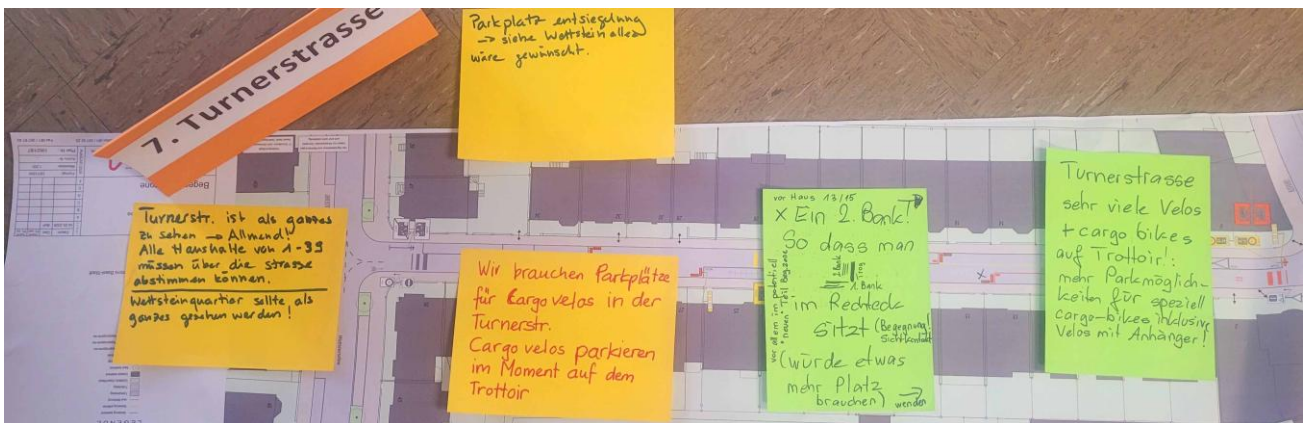 7. Turnerstrasse
Parkplatz entsiegelung
→ siehe Wettsteinallee
wäre gewünscht.
Turnerstr. ist als ganzes
zu sehen → Allmend!
Alle Haushalte von 1-39
müssen über die Strasse
abstimmen können.
Wettsteinquartier sollte als
ganzes gesehen werden!
Wir brauchen Parkplätze
für Cargovelos in der
Turnerstr.
Cargovelos parkieren
im Moment auf dem
Trottoir
vor Haus 13/15
X Ein 2. Bank!
So dass man
2. Bank
1. Bank
im Rechteck
sitzt (Begegnung!
Sichtkontakt)
(würde etwas
mehr Platz
brauchen)
wenden
vor allem im potentiell
"neuen" Teil
Turnerstrasse
sehr viele Velos
+ cargo bikes
auf Trottoir!:
mehr Parkmöglich-
keiten für speziell
cargo-bikes inklusive
Velos mit Anhänger!